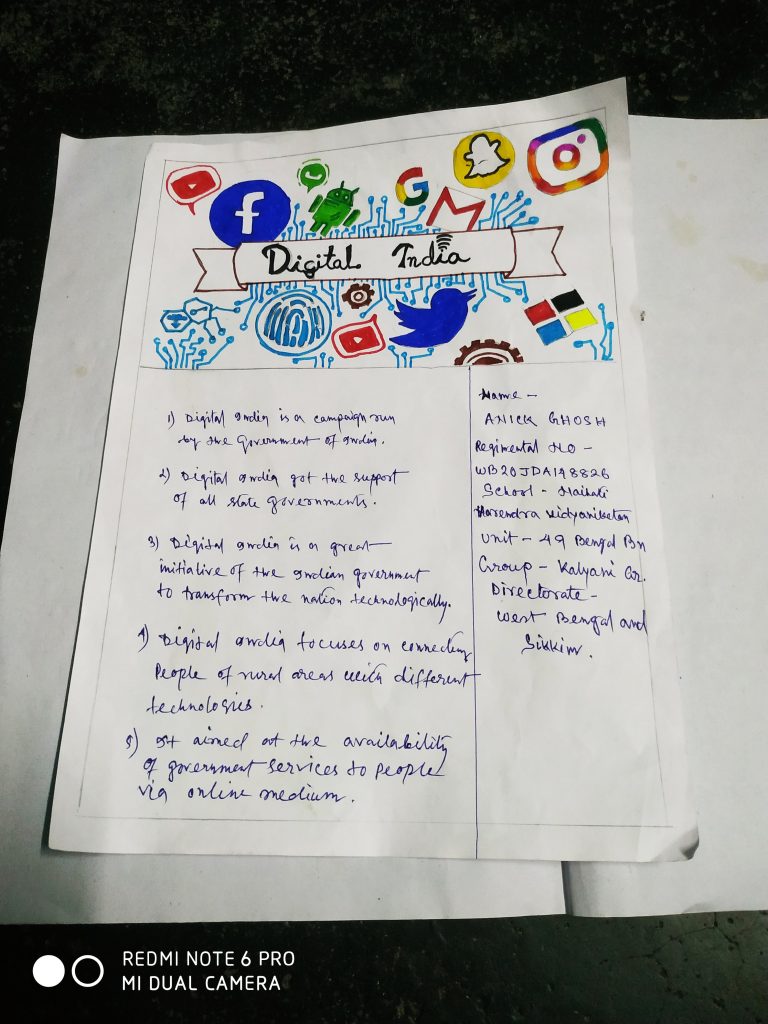 Digital India
1) Digital India is a campaign run
by the Government of India.
2) Digital India got the support
of all state governments.
3) Digital India is a great
initiative of the Indian government
to transform the nation technologically.
4) Digital India focuses on connecting
People of rural areas with different
technologies.
5) It aimed at the availability
of government services to people
via online medium.
Name -
ANICK GHOSH
Regimental NO -
WB20JDA198826
School - Naihati
Narendra Vidyaniketan
Unit - 49 Bengal Bn
Group - Kalyani Gr.
Directorate -
West Bengal and
Sikkim.
REDMI NOTE 6 PRO
MI DUAL CAMERA